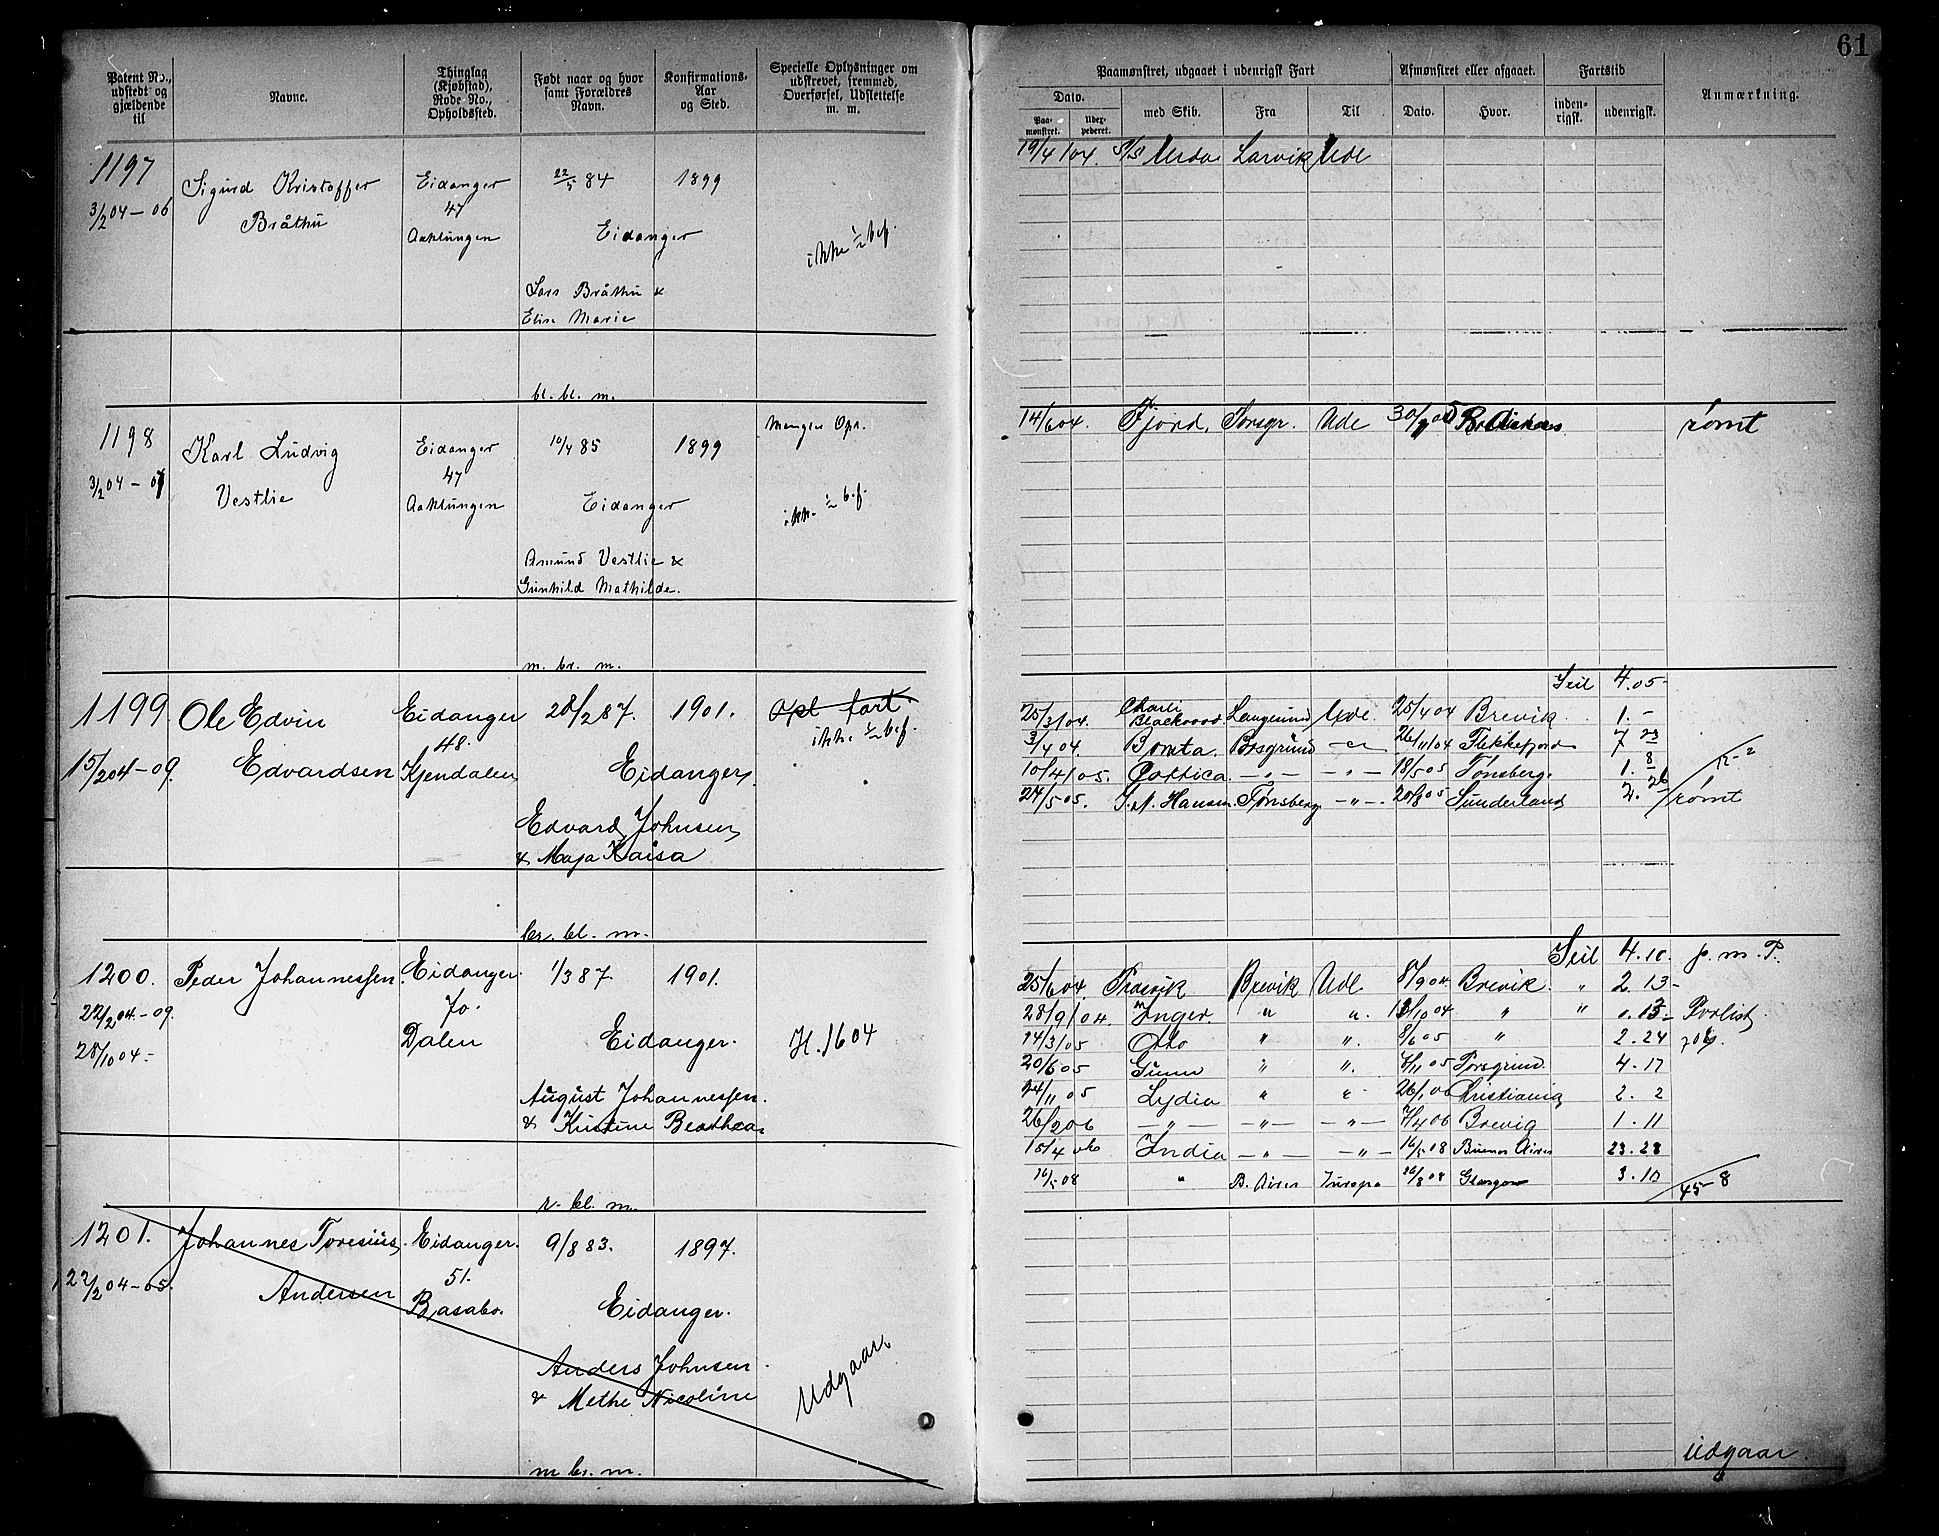 61
Patent No., udstedt og gjældende til
Navne.
Thinglag (Kjøbstad), Rode No., Opholdssted.
Født naar og hvor samt Forældres Navn.
Konfirmations-Aar og Sted.
Specielle Oplysninger om udskrevet, fremmed, Overførsel, Udslettelse m. m.
Paamønstret, udgaaet i udenrigsk Fart
Afmønstret eller afgaaet.
Fartstid
Anmærkning.
Dato.
med Skib.
Fra
Til
Dato.
Hvor.
inden-rigsk.
udenrigsk.
Paa-mønstret.
1197
Sigurd Kristoffer
Eidanger
22/5 84
1899
3/2 04 - 06
Bråthu
47
Aaklungen
Eidanger
ikke 1/2 bef.
Lars Bråthu &
Elise Marie
bl. bl. m.
19/4 04. S/S Urda Larvik Ude
1198
Karl Ludvig
Eidanger
10/4 85
1899
Mangler Opr.
3/2 04 - 07
Vestlie
47
Aaklungen
Eidanger
ikke 1/2 bef.
Amund Vestlie &
Gunhild Mathilde.
m. br. m.
14/6 04. Fjord, Porsgr. Ude rømt
1199
Ole Edvin
Eidanger
28/2 87.
1901.
Opl fart
15/2 04 - 09.
Edvardsen
48.
Kjendalen
Eidanger,
ikke 1/2 bef.
Edvard Johnsen,
& Maja Kaisa
br. bl. m.
Seil 4.05-
25/3 04. Charli Blackwood. Langesund Ude. 25/4 04 Brevik. 1. -
3/4 04. Porsgrund 26/11 04 Flekkefjord 7 23
10/4 05. Cottica. - „ - - „ - 18/5 05 Tønsberg. 1. 8
12-2
24/5 05. Hansen. Tønsberg - „ - 20/8 05 Sunderland 2. 26 rømt
1200.
Peder Johannessen.
Eidanger.
1/3 87.
1901.
22/2 04 - 09.
28/10 04 -
Dalen
Eidanger.
H. 1604
August Johannessen.
& Kristine Beathea.
r. bl. m.
Seil 4.10. p. m. P.
25/6 04. Brevik Ude 8/9 04 Brevik. " 2. 13 -
28/9 04. Inger. " " 13/10 04 " "
14/3 05 Otto " " 8/6 05 " 2. 24
20/6 05 " " 4/11 05 Porsgrund. 4. 17
24/11 05 Lydia " " 26/1 06 Kristiania, 2. 2
26/2 06 - „ - - „ - - „ - 7/4 06 Brevig 1. 11
15/4 06 India - „ - - „ - 16/5 08 Buenos Aires 23. 28
16/5 08 " B. Aires Europa 26/8 08 Glasgow 3. 10
45 - 8
1201.
Johannes Toresius,
Eidanger.
9/8 83.
1897.
22/2 04 - 05.
Andersen
51.
Basabo.
Eidanger.
Anders Johnsen
& Methe Nicoline
Udgaar
m br. m.
Udgaar.